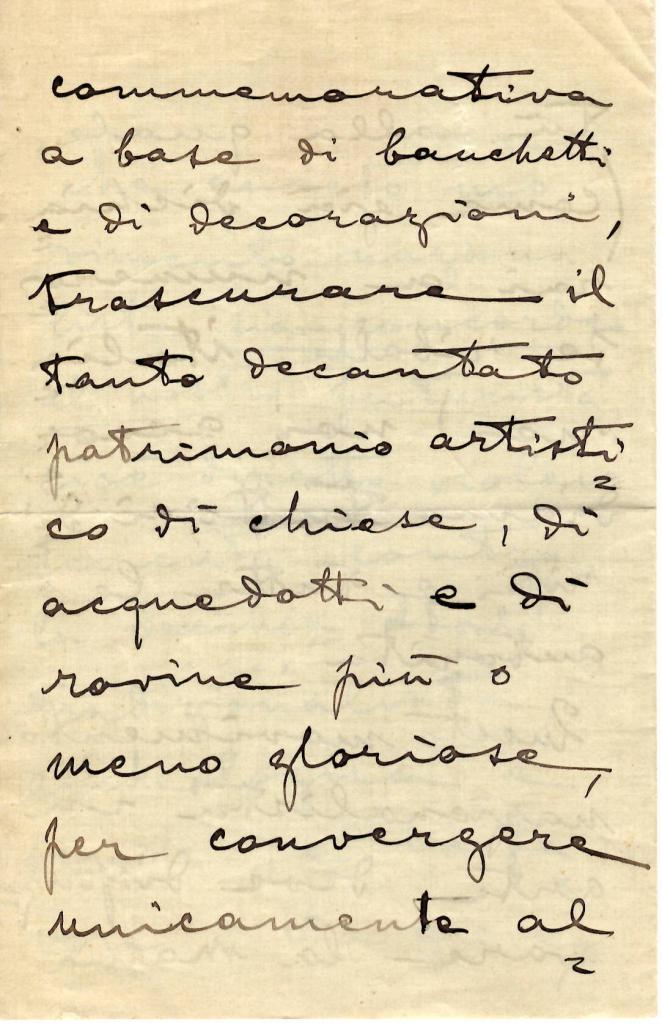 commemorativa
a base di banchetti
e di decorazioni,
trascurare il
tanto decantato
patrimonio artisti=
co di chiese, di
acquedotti e di
rovine più o
meno gloriose,
per convergere
unicamente al=